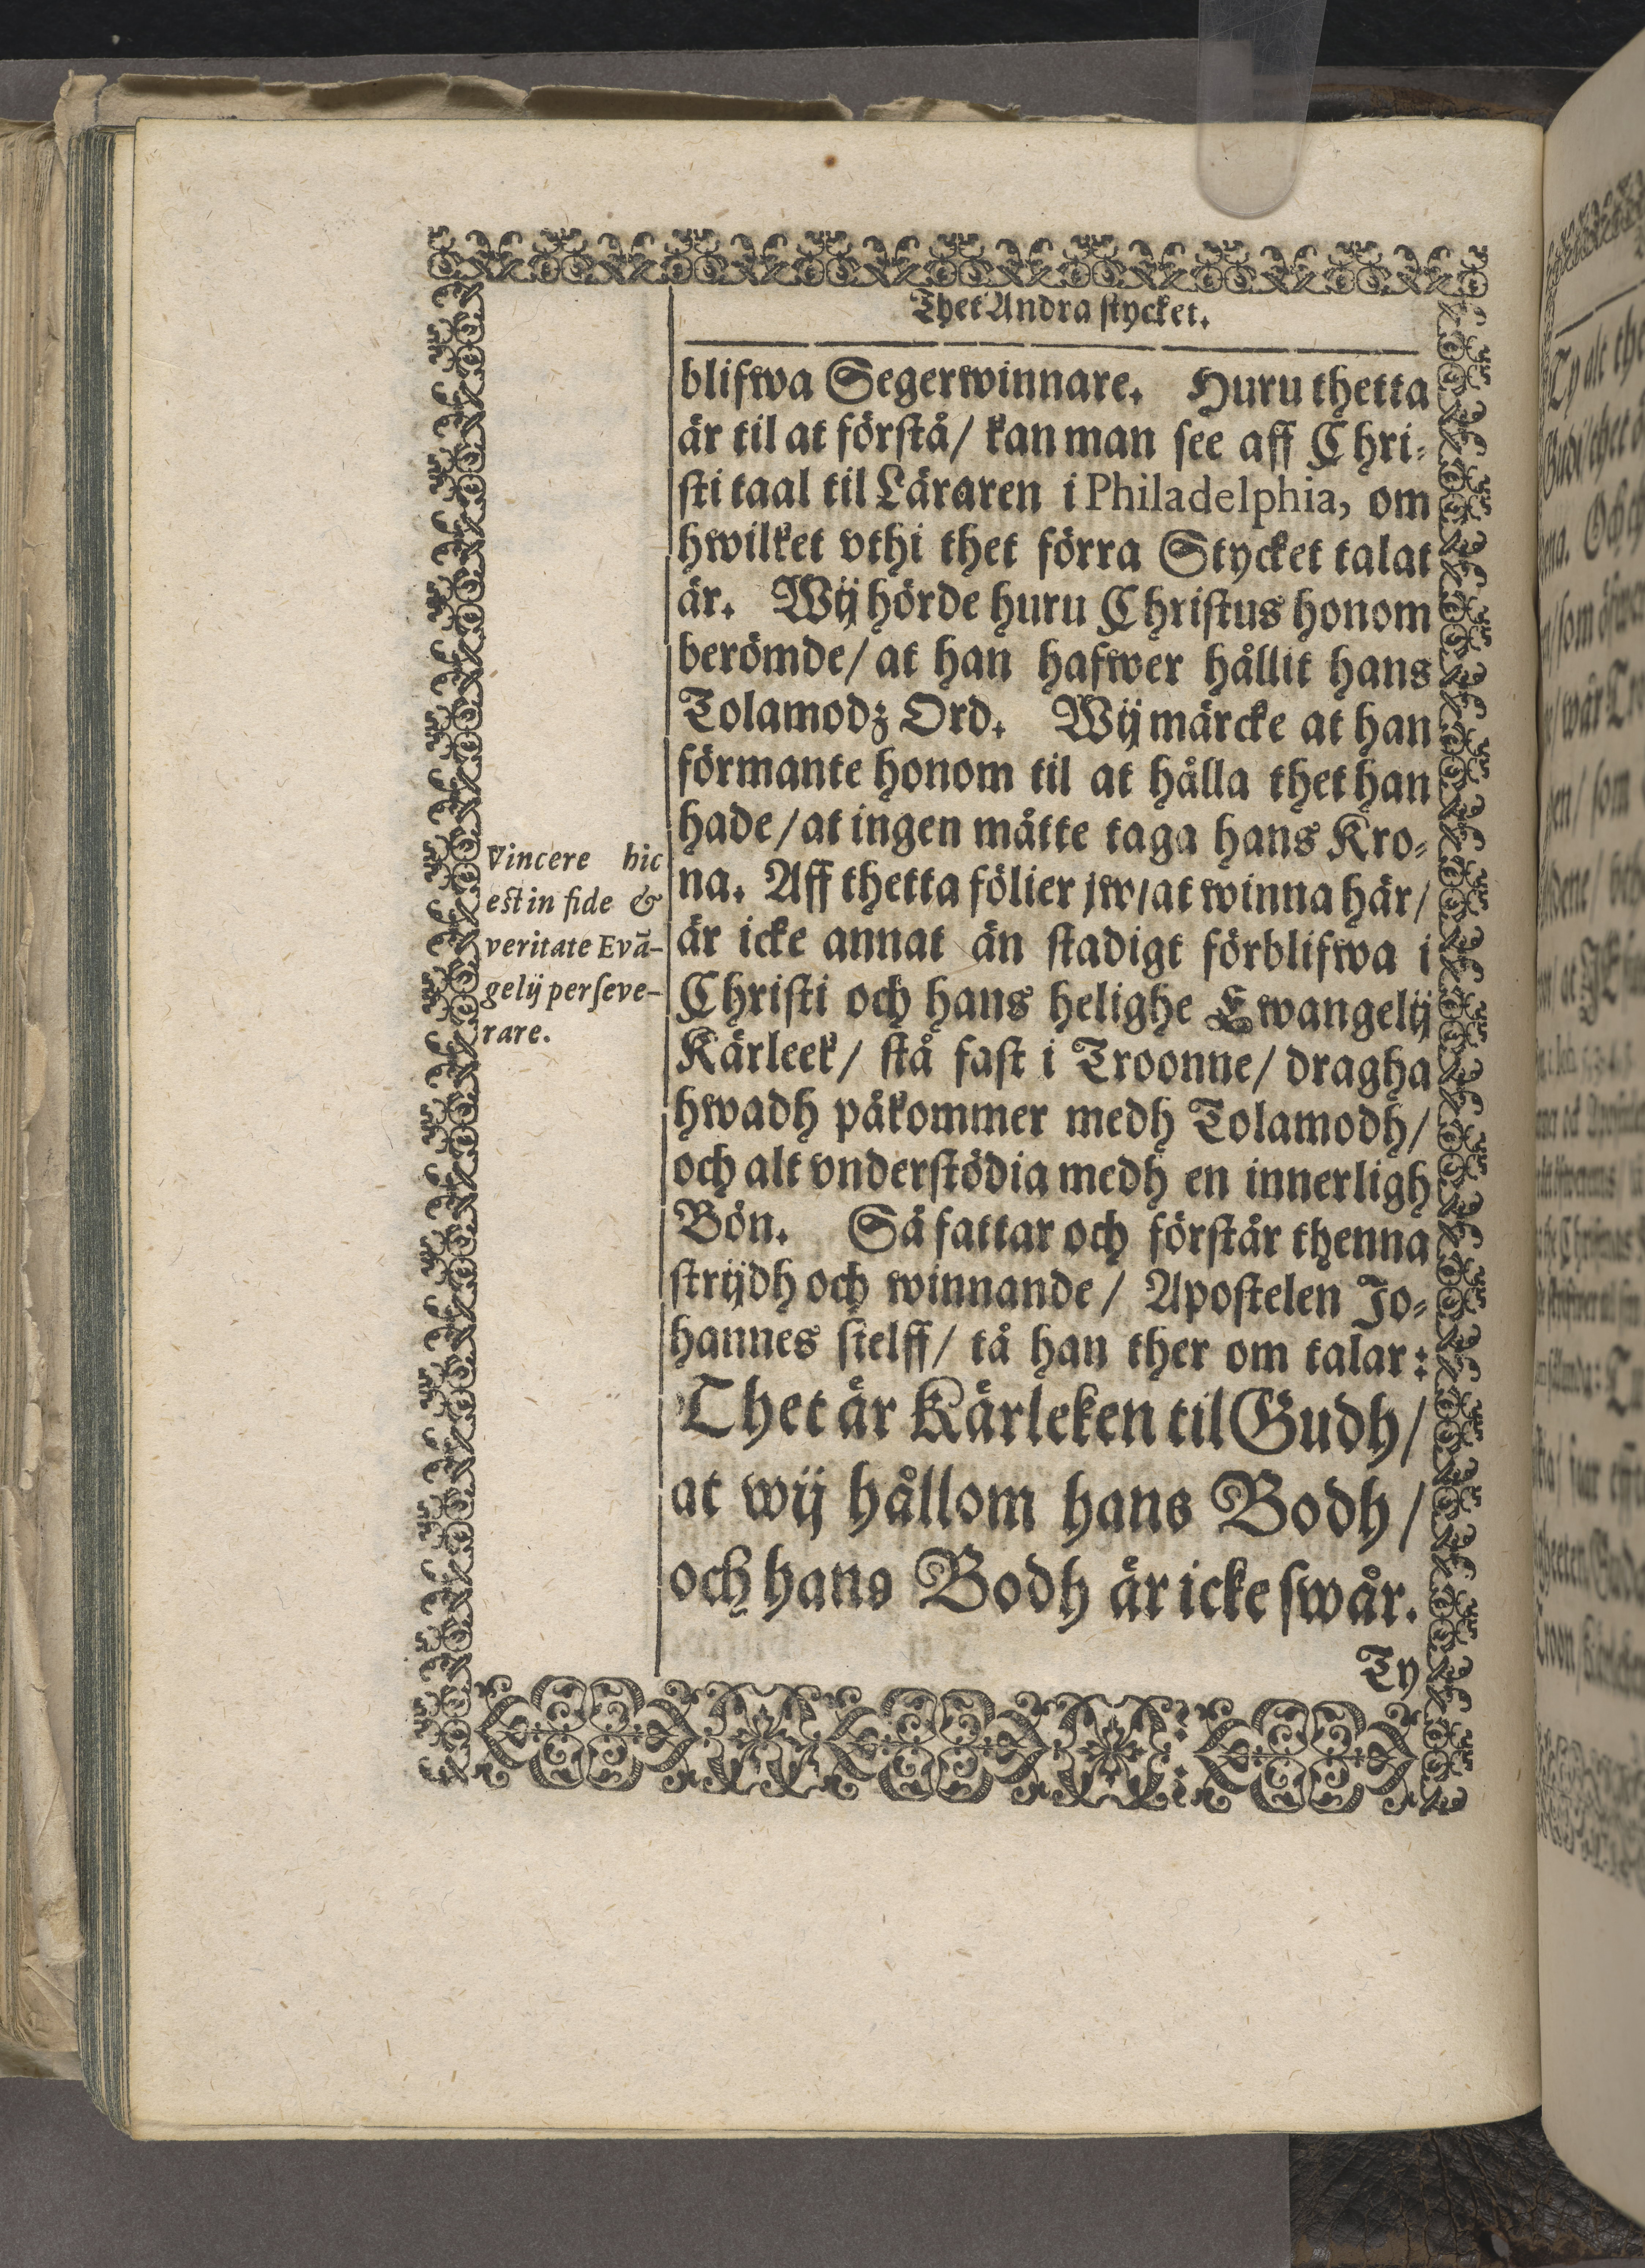 Thet Andra stycket.
blifwa Segerwinnare. Huru thetta
är til at förstå/ kan man see aff Chri-
sti taal til Läraren i Philadelphia, om
hwilket vthi thet förra Stycket talat
är. Wij hörde huru Christus honom
berömde/ at han hafwer hållit hans
Tolamodz Ord. Wij märcke at han
förmante honom til at hålla thet han
hade/ at ingen måtte taga hans Kro-
na. Aff thetta fölier jw/ at winna här/
är icke annat än stadigt förblifwa i
Christi och hans helighe Ewangelij
Kärleek/ stå fast i Troonne/ dragha
hwadh påkommer medh Tolamodh/
och alt vnderstödia medh en innerligh
Bön. Så fattar och förstår thenna
strijdh och winnande/ Apostelen Jo-
hannes sielff/ tå han ther om talar:
Thet är Kärleken til Gudh/
at wij hållom hans Bodh/
och hans Bodh är icke swår.
Ty
Vincere hic
est in fide &
veritate Evā-
gelij perseve-
rare.